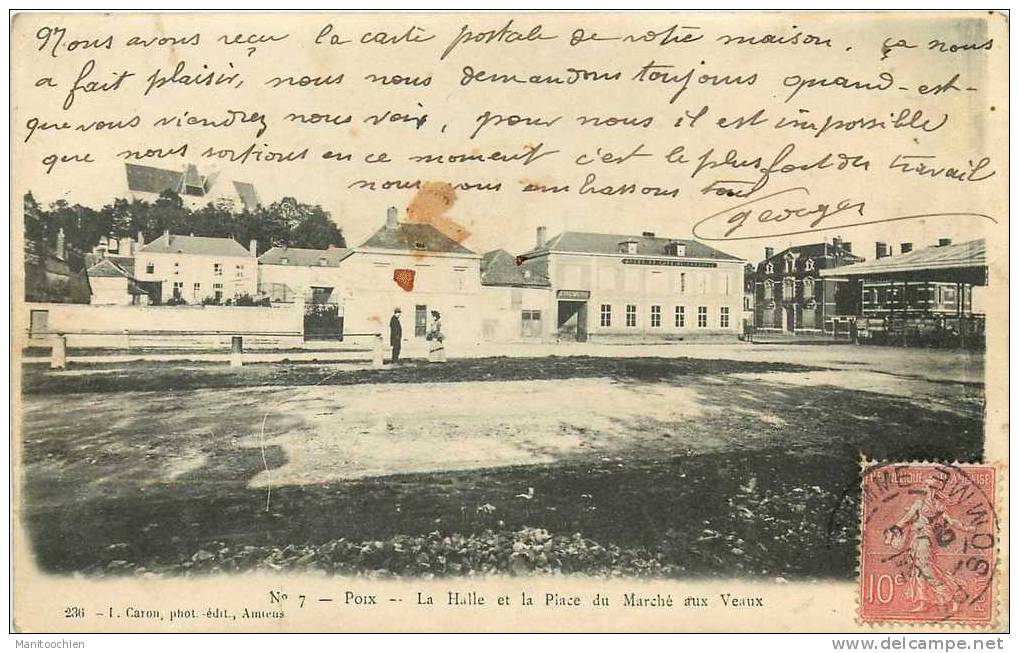 Nous avons reçu la carte postale de votre maison. ça nous
a fait plaisir, nous nous demandons toujours quand-est-
que vous viendrez nous voir, pour nous il est impossible
que nous sortions en ce moment c'est le plus fort du travail
nous vous embrassons tous
Georges
REPUBLIQUE FRANÇAISE
10c
SOMME
Nº 7 — Poix -- La Halle et la Place du Marché aux Veaux
236 - L. Caron, phot.-édit., Amiens
Manitoochien
http://www.delcampe.net